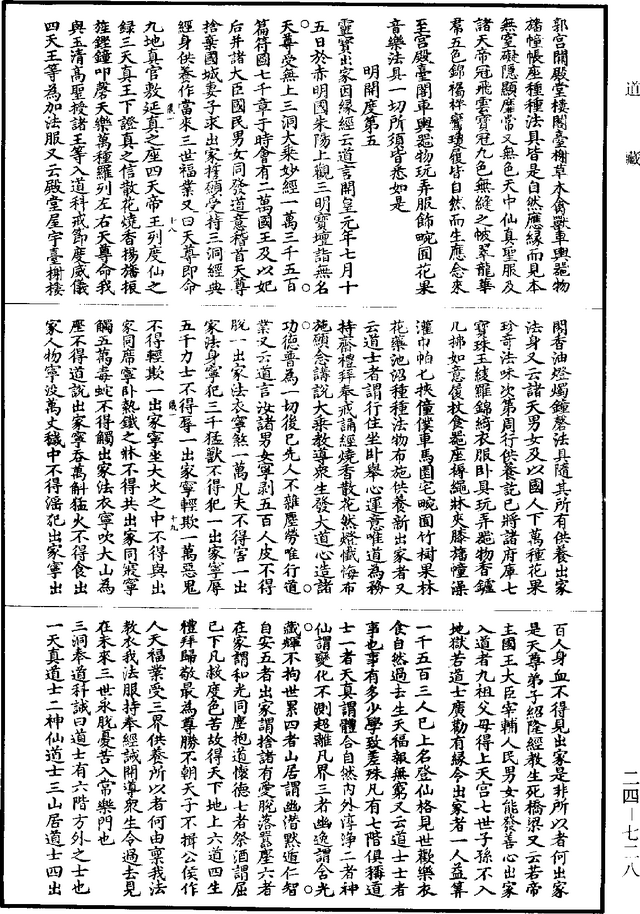 道藏
郭宫閣殿堂樓閣臺榭草木禽獸車輿器物
旛幢帳座種種法具皆是自然應緣而見本
無堂礙隱顯靡常又無色天中仙真聖服及
諸天帝冠飛雲寶冠九色無縫之帔翠龍華
帬五色錦橘桦鸞瓊履皆自然而生應念來
至宫殿臺閣車輿器物玩弄服飾畹囿花果
音樂法具一切所須皆悉如是
明開度第五
靈寶出家因緣經云道言開皇元年七月十
五日於赤明國朱陽上觀三明寶壇詣無名
天尊受無上三洞大乘妙經一萬三千五百
篇符圖七千章于時會有二萬國王及以妃
后并諸大臣國民男女同發道意稽首天尊
捨棄國城妻子求出家擇願受持三洞經典
經身供養作當來三世福業又曰天尊即命
儀一 十八
九地真官敷延真之座四天帝王列度仙之
錄三天真王下證真之信散花燒香揚旛振
旌鏗鐘叩磬天樂萬種羅列左右天尊命我
與玉清高聖授諸王等入道科戒節度威儀
四天王等為加法服又云殿堂屋宇臺榭樓
閣香油燈燭鐘磬法具隨其所有供養出家
法身又云諸天男女及以國人下萬種花果
珍奇法味次第周行供養訖已將諸府庫七
寶珠玉綾羅錦綺衣服卧具玩弄器物香鑪
几拂如意履杖食器座褥繩牀夾膝旛幢澡
灌巾帕七挾僮僕車馬園宅畹囿竹樹果林
花藥池沼種種法物布施供養新出家者又
云道士者謂行住坐卧舉心運意唯道為務
持齋禮拜奉戒誦經燒香散花然燈懺悔布
施願念講說大乘教導衆生發大道心造諸
功德普為一切後已先人不雜塵勞唯行道
業又云道言汝諸男女寧剥五百人皮不得
脫一出家法衣寧煞一萬凡夫不得害一出
家法身寧犯三千猛獸不得犯一出家寧辱
五千力士不得辱一出家寧輕欺一萬惡鬼
儀一 十九
不得輕欺一出家寧坐大火之中不得與出
家同席寧卧熱鐵之牀不得共出家同寐寧
觸五萬毒蛇不得觸出家法衣寧吹大山為
塵不得道說出家寧吞萬斛猛火不得食出
家人物寧没萬丈穢中不得淫犯出家寧出
百人身血不得見出家是非所以者何出家
是天尊弟子紹隆經教生死橋梁又云若帝
主國王大臣宰輔人民男女能發善心出家
入道者九祖父母得上天宫七世子孫不入
地獄苦道士廣勸有緣令出家者一人益算
一千五百三人已上名登仙格見世歡樂衣
食自然過去生天福報無窮又云道士士者
事也事有多少學致差殊凡有七階俱稱道
士一者天真謂體合自然内外淳淨二者神
仙謂變化不測超離凡界三者幽逸謂含光
藏輝不拘世累四者山居謂幽潛默遁仁智
自安五者出家謂捨諸有愛脫落囂塵六者
在家謂和光同塵抱道懷德七者祭酒謂屈
已下凡救度危苦故得天下地上六道四生
禮拜歸敬最為尊勝不朝天子不揖公侯作
人天福業受三界供養所以者何由稟我法
教衣我法服持奉經誡開導衆生令過去見
在未來三世永脫憂苦入常樂門也
三洞奉道科誡曰道士有六階方外之士也
一天真道士二神仙道士三山居道士四出
二四—七二八